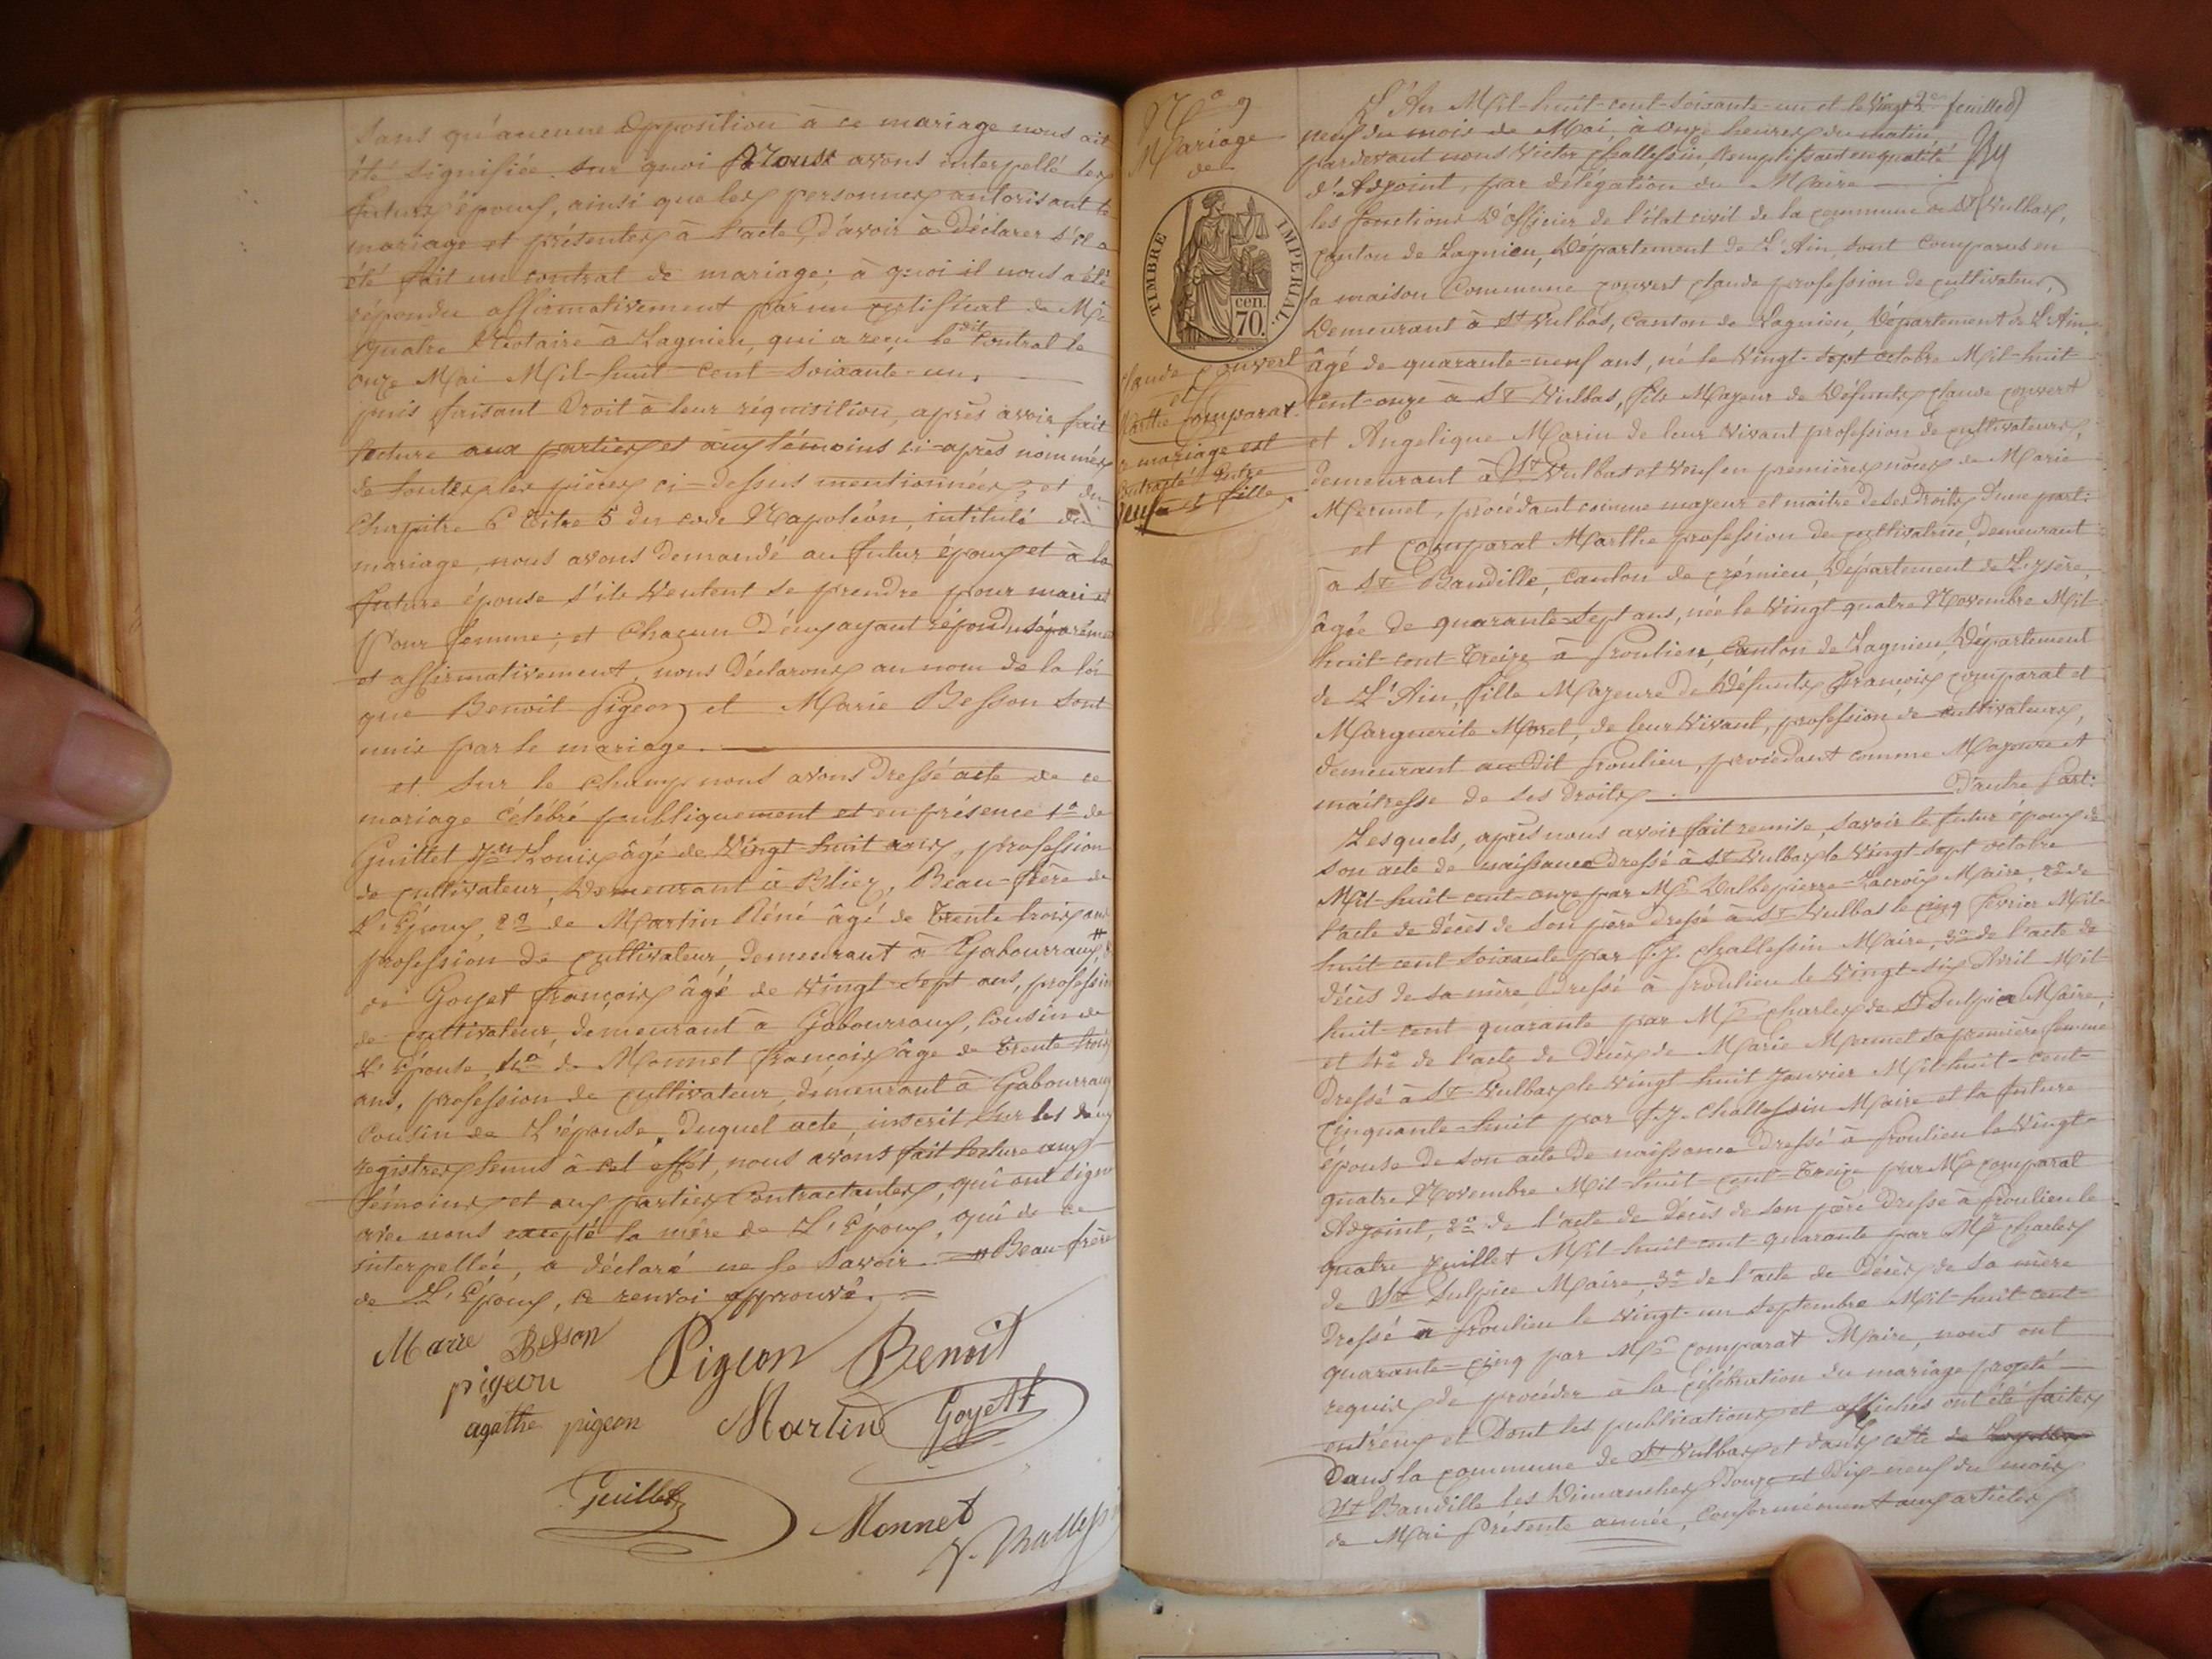 sans qu'aucune Opposition à ce mariage nous ait
été signifiée. sur quoi Nous avons interpellé les
futurs époux, ainsi que les personnes autorisant le
mariage et présentes à l'acte, d'avoir à Déclarer s'il a
été fait un contrat de mariage; à quoi il nous a été
répondu affirmativement par un certificat de Me
quatre Notaire à Lagnieu, qui a reçu le dit Contrat le
onze Mai Mil-huit cent-soixante-un.
puis faisant Droit à leur réquisition, après avoir fait
lecture aux parties et aux témoins ci-après nommés
de toutes les pièces ci-dessus mentionnées, et du
Chapitre 6 Titre 5 du code Napoléon, intitulé du
mariage, nous avons Demandé au futur époux et à la
future épouse s'ils Veulent se prendre pour mari et
Pour femme; et Chacun D'eux ayant répondu séparément
et affirmativement, nous Déclarons au nom de la loi
que Benoit Pigeon et Marie Besson sont
unis par le mariage.
et sur le champ nous avons Dressé acte de ce
mariage célébré publiquement et en présence 1o de
Guillet Louis âgé de Vingt-huit ans, profession
de cultivateur, Demeurant à Bliez, Beau-frère de
L'Epoux, 2o de Martin Réné âgé de Trente trois ans
profession de cultivateur, Demeurant à Gabourraux,
de Goyet François âgé de Vingt-sept ans, profession
de cultivateur, Demeurant à Gabourraux, Cousin de
L'Epouse, 4o de Monnet François âgé de Trente-trois
ans, profession de cultivateur, demeurant à Gabourraux
Cousin de L'épouse, Duquel acte, inscrit sur les deux
registres tenus à cet effet, nous avons fait lecture aux
témoins et aux parties Contractantes, qui ont signé
avec nous excepté la mère de L'Epoux, qui de ce
interpellée, a déclaré ne le savoir = # Beau-frère
de L'Epoux, ce renvoi approuvé. =
Marie Besson
Pigeon Benoit
pigeon
agathe pigeon
Martin
Goyet
Guillet
Monnet
V.
No 9
Mariage
de
TIMBRE IMPERIAL
70 cen.
Claude Convert
et
Marthe Comparat.
Ce mariage est
Contracté Entre
Veuf et fille.
L'An Mil-huit-cent-Soixante-un et le Vingt 2e feuille
neuf du mois de Mai, à onze heures du matin
pardevant nous Victor Challessin, Remplissant en qualité
d'Adjoint, par délégation du Maire
les fonctions D'officier de l'état civil de la commune de St Vulbas,
canton de Lagnieu, Département de L'Ain, sont comparus en
la maison Commune Convert Claude profession de cultivateur,
Demeurant à St Vulbas, Canton de Lagnieu, Département de L'Ain,
âgé de quarante-neuf ans, né le Vingt-sept octobre Mil-huit
Cent-onze à St Vulbas, fils Majeur de Défunts Claude Convert
et Angelique Marin de leur Vivant profession de cultivateurs,
demeurant à St Vulbas et Veuf en premières nôces de Marie
Mermet, procédant comme majeur et maitre de ses Droits D'une part:
et Comparat Marthe profession de cultivatrice, Demeurant
à St Baudille, Canton de Crémieu, Département de Lysère,
âgée de quarante-sept ans, née le Vingt quatre Novembre Mil-
huit-cent-Treize à Proulieu, Canton de Lagnieu, Département
de L'Ain, fille Majeure de Défunts François Comparat et
Marguerite Moret, de leur Vivant, profession de cultivateurs,
demeurant au Dit Proulieu, procédant comme Majeure et
maitresse de ses Droits D'autre Part:
Lesquels, après nous avoir fait remise, savoir le futur époux de
son acte de naissance Dressé à St Vulbas le Vingt-sept octobre
Mil-huit-cent-onze par Mr Dalbepierre-Lacroix Maire, 2o de
l'acte de décès de son père dressé à St Vulbas le Cinq Février Mil-
huit cent soixante par F.J. Challessin Maire, 3o de l'acte de
décès de sa mère Dressé à Proulieu le Vingt-six Avril Mil-
huit-cent quarante par Mr Charles de St Sulpice Maire,
et 4o de l'acte de Décès de Marie Mermet sa première femme
Dressé à St Vulbas le Vingt huit Janvier Mil-huit-cent-
Cinquante-huit par F.J. Challessin Maire et la future
épouse de son acte de naissance Dressé à Proulieu le Vingt-
quatre Novembre Mil-huit-cent-Treize par Mr Comparat
Adjoint, 2o de l'acte de Décès de son père Dressé à Proulieu le
quatre Juillet Mil-huit-cent-quarante par Mr Charles
de St Sulpice Maire, 3o de l'acte de Décès de sa mère
Dressé à Proulieu le Vingt-un Septembre Mil-huit-cent-
quarante-Cinq par Mr Comparat Maire, nous ont
requis de procéder à la Célébration du mariage projeté
entr'eux et Dont les publications et affiches ont été faites
Dans la commune de St Vulbas et dans cette de
St Baudille les Dimanches Douze et Dix-neuf du mois
de Mai Présente année, conformément aux articles